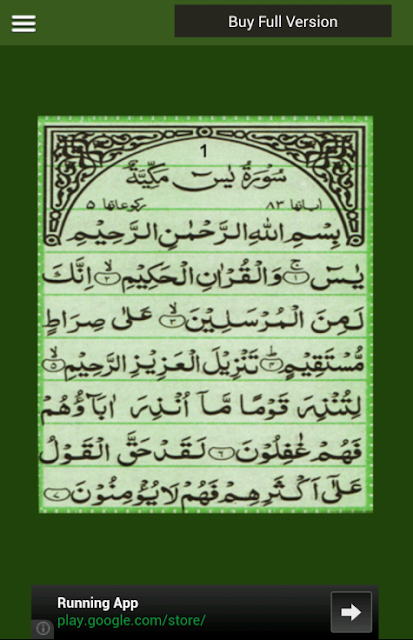 Buy Full Version
1
سُوْرَةُ يٰسٓ مَكِّيَّةٌ
اٰیاتها ٨٣ رکوعاتها ٥
بِسْمِ اللهِ الرَّحْمٰنِ الرَّحِيْمِ
يٰسٓ ۚ﴿١﴾ وَالْقُرْاٰنِ الْحَكِيْمِ ۙ﴿٢﴾ اِنَّكَ
لَمِنَ الْمُرْسَلِيْنَ ۙ﴿٣﴾ عَلٰى صِرَاطٍ
مُّسْتَقِيْمٍ ؕ﴿٤﴾ تَنْزِيْلَ الْعَزِيْزِ الرَّحِيْمِ ۙ﴿٥﴾
لِتُنْذِرَ قَوْمًا مَّاۤ اُنْذِرَ اٰبَآؤُهُمْ
فَهُمْ غٰفِلُوْنَ ﴿٦﴾ لَقَدْ حَقَّ الْقَوْلُ
عَلٰٓى اَكْثَرِهِمْ فَهُمْ لَا يُؤْمِنُوْنَ ﴿٧﴾
Running App
play.google.com/store/